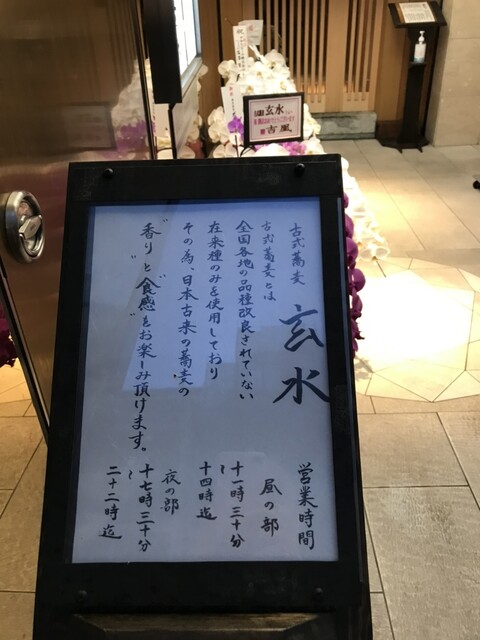 古式蕎麦
玄水
古式蕎麦とは
全国各地の品種改良されていない
在来種のみを使用しており
その為、日本古来の蕎麦の
"香り"と"食感"をお楽しみ頂けます。
営業時間
昼の部
十一時三十分
〜
十四時迄
夜の部
十七時三十分
〜
二十二時迄
玄水
古風